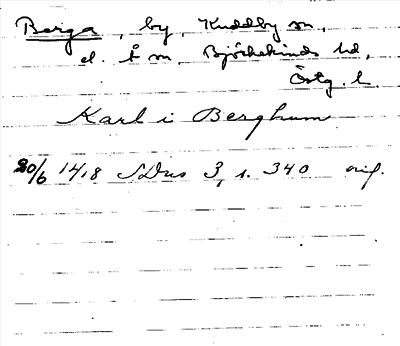 Berga, by, Kuddby sn,
el. Å sn, Björkekinds hd,
Östg. l.
Karl i Berghum
20/6 1418 SDns 3, s. 340 orig.